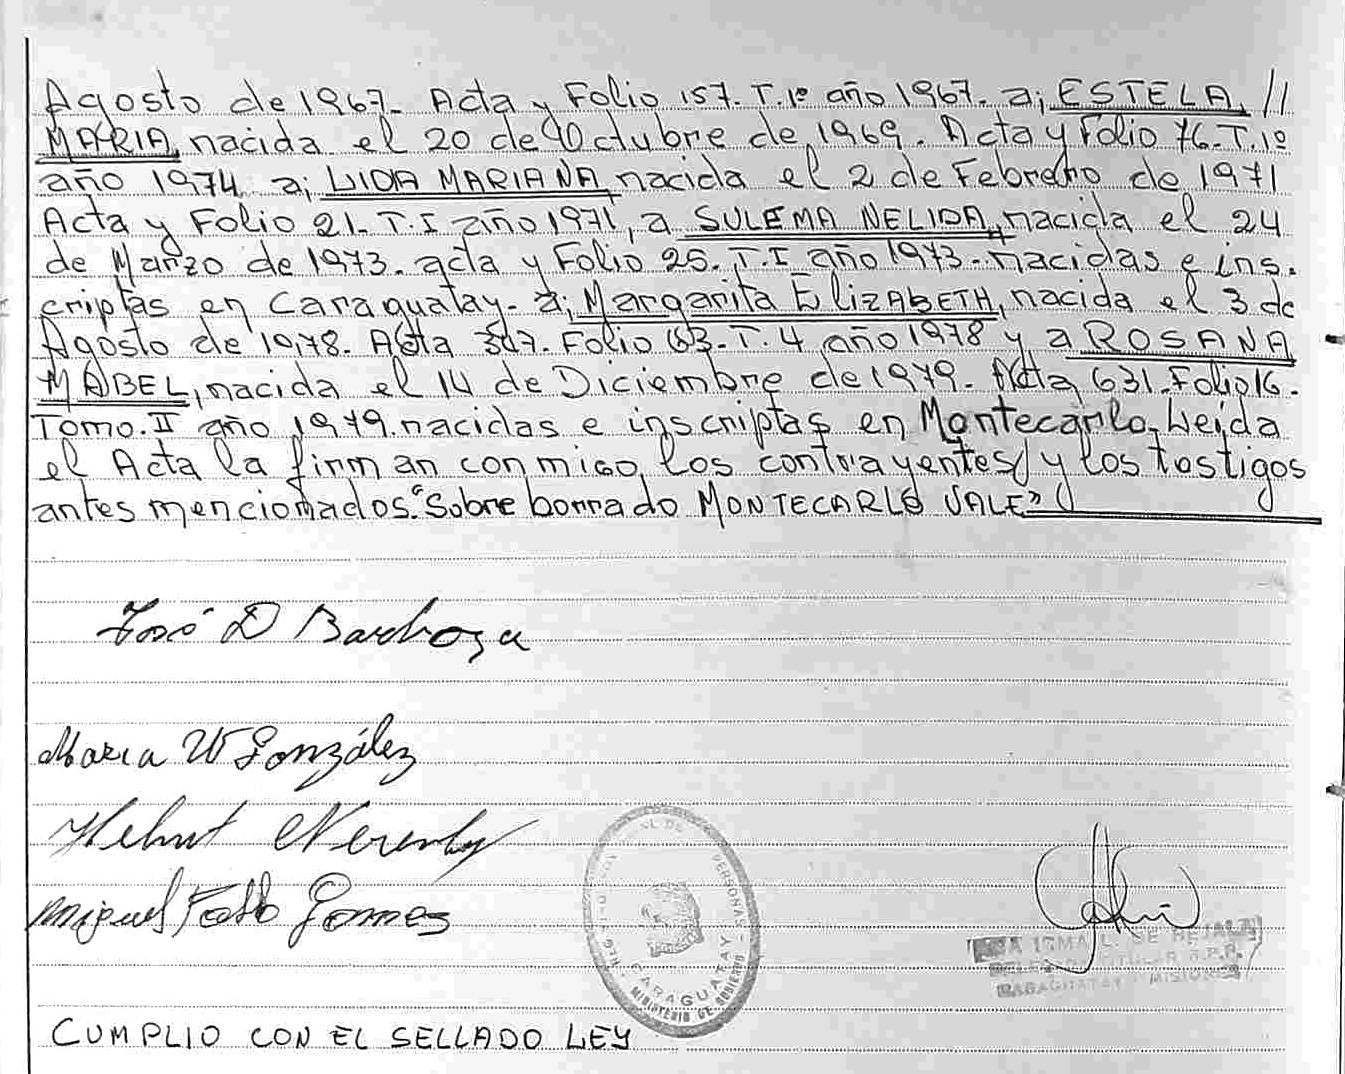 Agosto de 1967. Acta y Folio 157. T. 1º año 1967. a; ESTELA //
MARIA, nacida el 20 de Octubre de 1969. Acta y Folio 76. T. 1º
año 1974 a; LIDIA MARIANA, nacida el 2 de Febrero de 1971
Acta y Folio 21. T. I año 1971, a SULEMA NELIDA, nacida el 24
de Marzo de 1973. acta y Folio 25. T. I año 1973. nacidas e ins.
criptas en Caraguatay. a; Margarita ElizABETH, nacida el 3 de
Agosto de 1978. Acta Folio 63. T. 4 año 1978 y a ROSANA
MABEL, nacida el 14 de Diciembre de 1979. Acta 631. Folio 16.
Tomo. II año 1979. nacidas e inscriptas en Montecarlo. Leida
el Acta la firman conmigo los contrayentes y los testigos
antes mencionados. "Sobre borrado MONTECARLO VALE"
José D Barboza
Maria W González
Helmut
Miguel Gomes
PERSONAS
CARAGUATAY
MINISTERIO DE GOBIERNO
IRMA L. DE
TITULAR
CARAGUATAY MISIONES
CUMPLIO CON EL SELLADO LEY